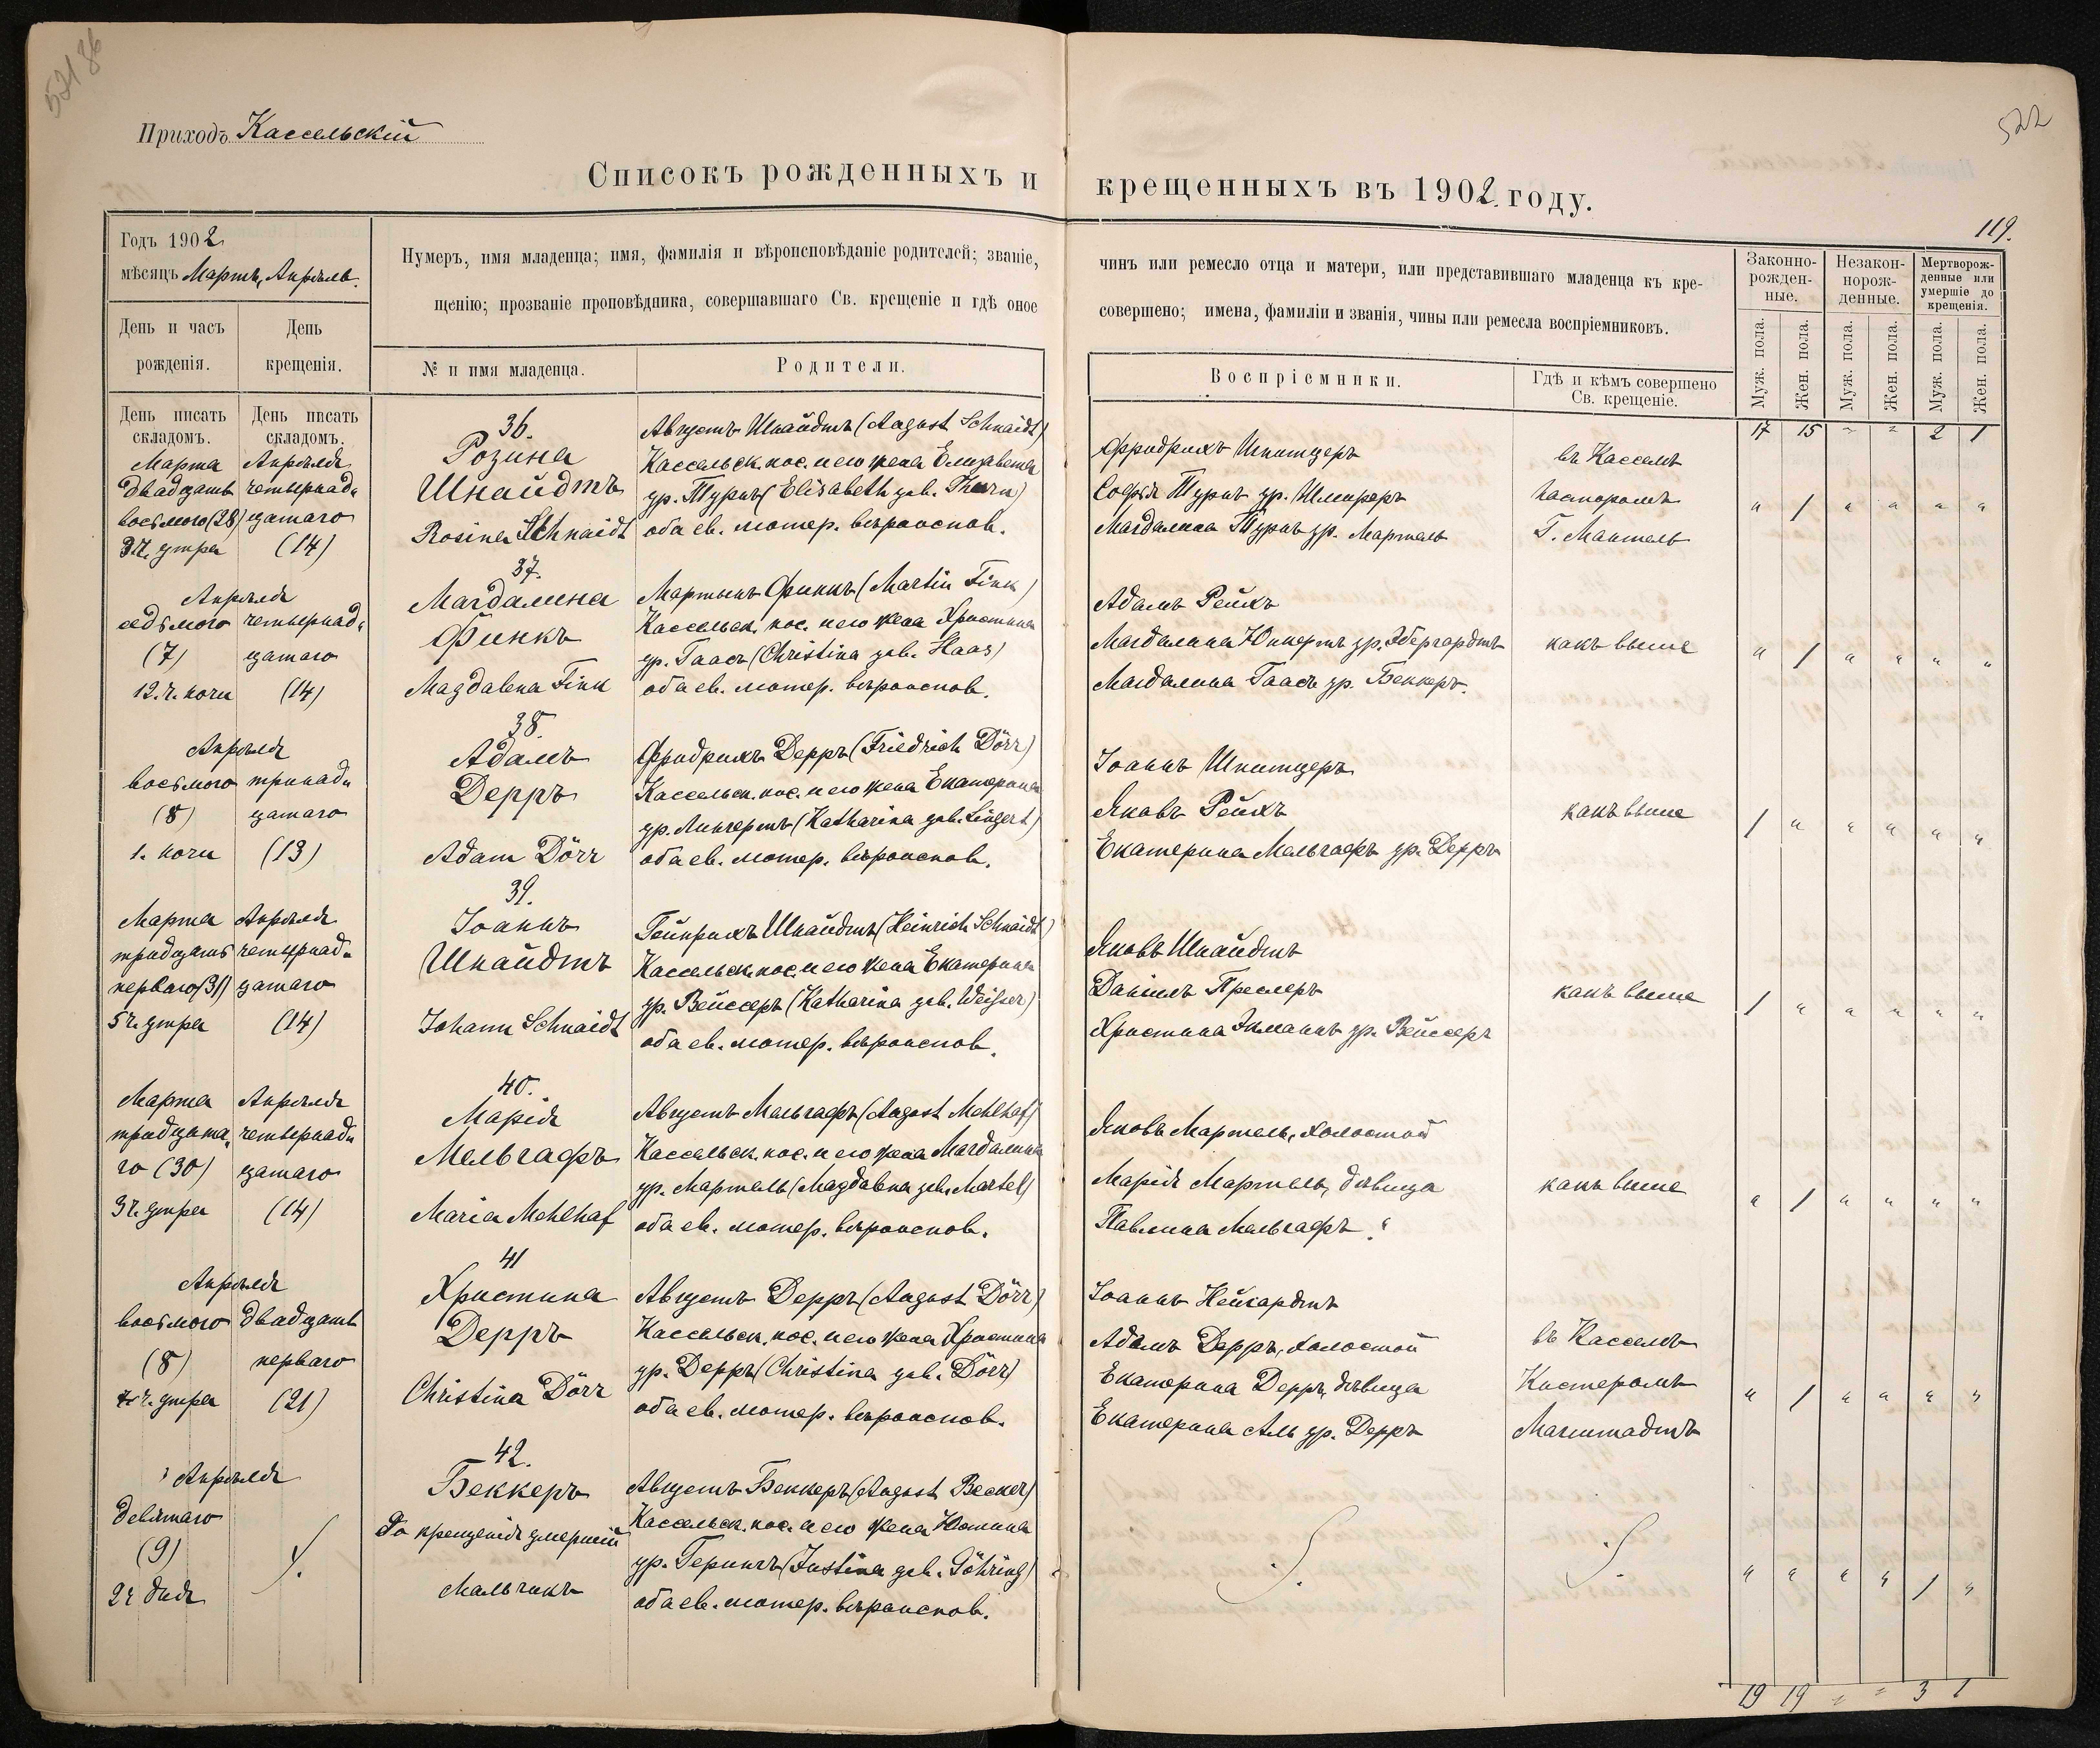 521 об
522
Приходъ Кассельскій
Списокъ рожденныхъ и крещенныхъ въ 1902 году.
119.
Годъ 1902
мѣсяцъ Мартъ, Апрѣль.
Нумеръ, имя младенца; имя, фамилія и вѣроисповѣданіе родителей; званіе, чинъ или ремесло отца и матери, или представившаго младенца къ кре-
щенію; прозваніе проповѣдника, совершавшаго Св. крещеніе и гдѣ оное совершено; имена, фамиліи и званія, чины или ремесла воспріемниковъ.
Законно-
рожден-
ные.
Незакон-
норож-
денные.
Мертворож-
денные или
умершіе до
крещенія.
День и часъ
рожденія.
День
крещенія.
№ и имя младенца.
Родители.
Воспріемники.
Гдѣ и кѣмъ совершено
Св. крещеніе.
Муж. пола.
Жен. пола.
Муж. пола.
Жен. пола.
Муж. пола.
Жен. пола.
День писать
складомъ.
День писать
складомъ.
17 15 " " 2 1
Марта
двадцать
восьмого (28)
3 ч. утра
Апрѣля
четырнад-
цатаго
(14)
36.
Розина
Шнайдтъ
Rosina Schnaidt
Августъ Шнайдтъ (August Schnaidt)
Кассельск. пос. и его жена Елизавета
ур. Турнъ (Elisabeth geb. Thurn)
оба ев. лютер. вѣроиспов.
Фридрихъ Шпитцеръ
Софья Турнъ ур. Шлиреръ
Магдалина Турнъ ур. Мартель
въ Касселѣ
Пасторомъ
Г. Мантель
" 1 " " " "
Апрѣля
седьмого
(7)
12. ч. ночи
четырнад-
цатаго
(14)
37.
Магдалина
Финкъ
Magdalena Fink
Мартынъ Финкъ (Martin Fink)
Кассельск. пос. и его жена Христина
ур. Гаасъ (Christina geb. Haas)
оба ев. лютер. вѣроиспов.
Адамъ Рейхъ
Магдалина Юнкертъ ур. Эбергардтъ
Магдалина Гаасъ ур. Беккеръ.
какъ выше
" 1 " " " "
Апрѣля
восьмого
(8)
1. ночи
тринад-
цатаго
(13)
38.
Адамъ
Дерръ
Adam Dörr
Фридрихъ Дерръ (Friedrich Dörr)
Кассельск. пос. и его жена Екатерина
ур. Лингертъ (Katharina geb. Lingert)
оба ев. лютер. вѣроиспов.
Іоаннъ Шпитцеръ
Яковъ Рейхъ
Екатерина Мельгафъ ур. Дерръ
какъ выше
1 " " " " "
Марта
тридцать
перваго (31)
5 ч. утра
Апрѣля
четырнад-
цатаго
(14)
39.
Іоаннъ
Шнайдтъ
Johann Schnaidt
Гейнрихъ Шнайдтъ (Heinrich Schnaidt)
Кассельск. пос. и его жена Екатерина
ур. Вейссеръ (Katharina geb. Weißer)
оба ев. лютер. вѣроиспов.
Яковъ Шнайдтъ
Даніилъ Преслеръ
Христина Эйманнъ ур. Вейссеръ
какъ выше
1 " " " " "
Марта
тридцата-
го (30)
3 ч. утра
Апрѣля
четырнад-
цатаго
(14)
40.
Марія
Мельгафъ
Maria Mehlhaf
Августъ Мельгафъ (August Mehlhaf)
Кассельск. пос. и его жена Магдалина
ур. Мартель (Magdalena geb. Martel)
оба ев. лютер. вѣроиспов.
Яковъ Мартель, холостой
Марія Мартель, дѣвица
Павлина Мельгафъ "
какъ выше
" 1 " " " "
Апрѣля
восьмого
(8)
ч. утра
двадцать
перваго
(21)
41
Христина
Дерръ
Christina Dörr
Августъ Дерръ (August Dörr)
Кассельск. пос. и его жена Христина
ур. Дерръ (Christina geb. Dörr)
оба ев. лютер. вѣроиспов.
Іоаннъ Нейгардтъ
Адамъ Дерръ, холостой
Екатерина Дерръ, дѣвица
Екатерина Аль ур. Дерръ
въ Касселѣ
Кистеромъ
Магштадтъ
" 1 " " " "
Апрѣля
девятаго
(9)
2 ч дня
42.
Беккеръ
До крещенія умершій
Мальчикъ
Августъ Беккеръ (August Becker)
Кассельск. пос. и его жена Юстина
ур. Герингъ (Justina geb. Göhring)
оба ев. лютер. вѣроиспов.
" " " " 1 "
19 19 " " 3 1